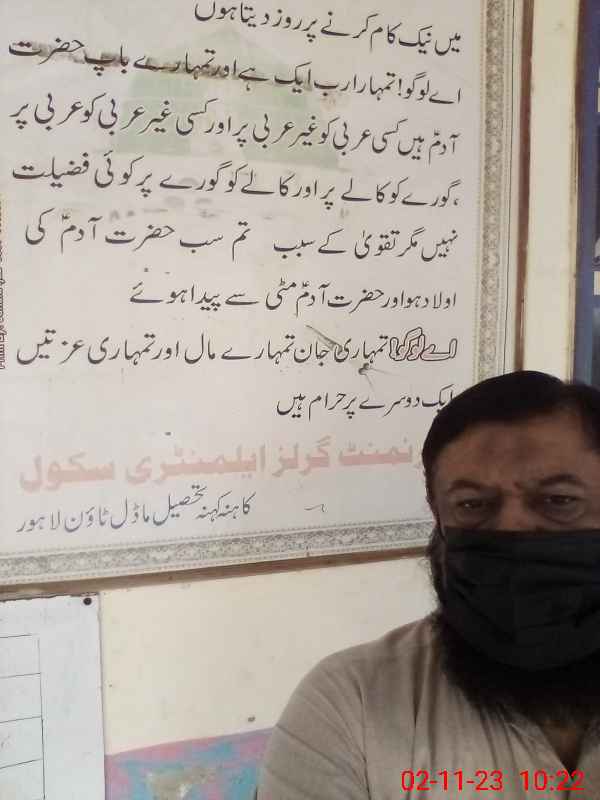 میں نیک کام کرنے پر زور دیتا ہوں
اے لوگو! تمہارا رب ایک ہے اور تمہارے باپ حضرت
آدمؑ ہیں کسی عربی کو غیر عربی پر اور کسی غیر عربی کو عربی پر
،گورے کو کالے پر اور کالے کو گورے پر کوئی فضیلت
نہیں مگر تقویٰ کے سبب تم سب حضرت آدمؑ کی
اولاد ہو اور حضرت آدمؑ مٹی سے پیدا ہوئے
اے لوگو! تمہاری جان تمہارے مال اور تمہاری عزتیں
ایک دوسرے پر حرام ہیں
رنمنٹ گرلز ایلمنٹری سکول
کاہنہ کہنہ تحصیل ماڈل ٹاؤن لاہور
02-11-23 10:22